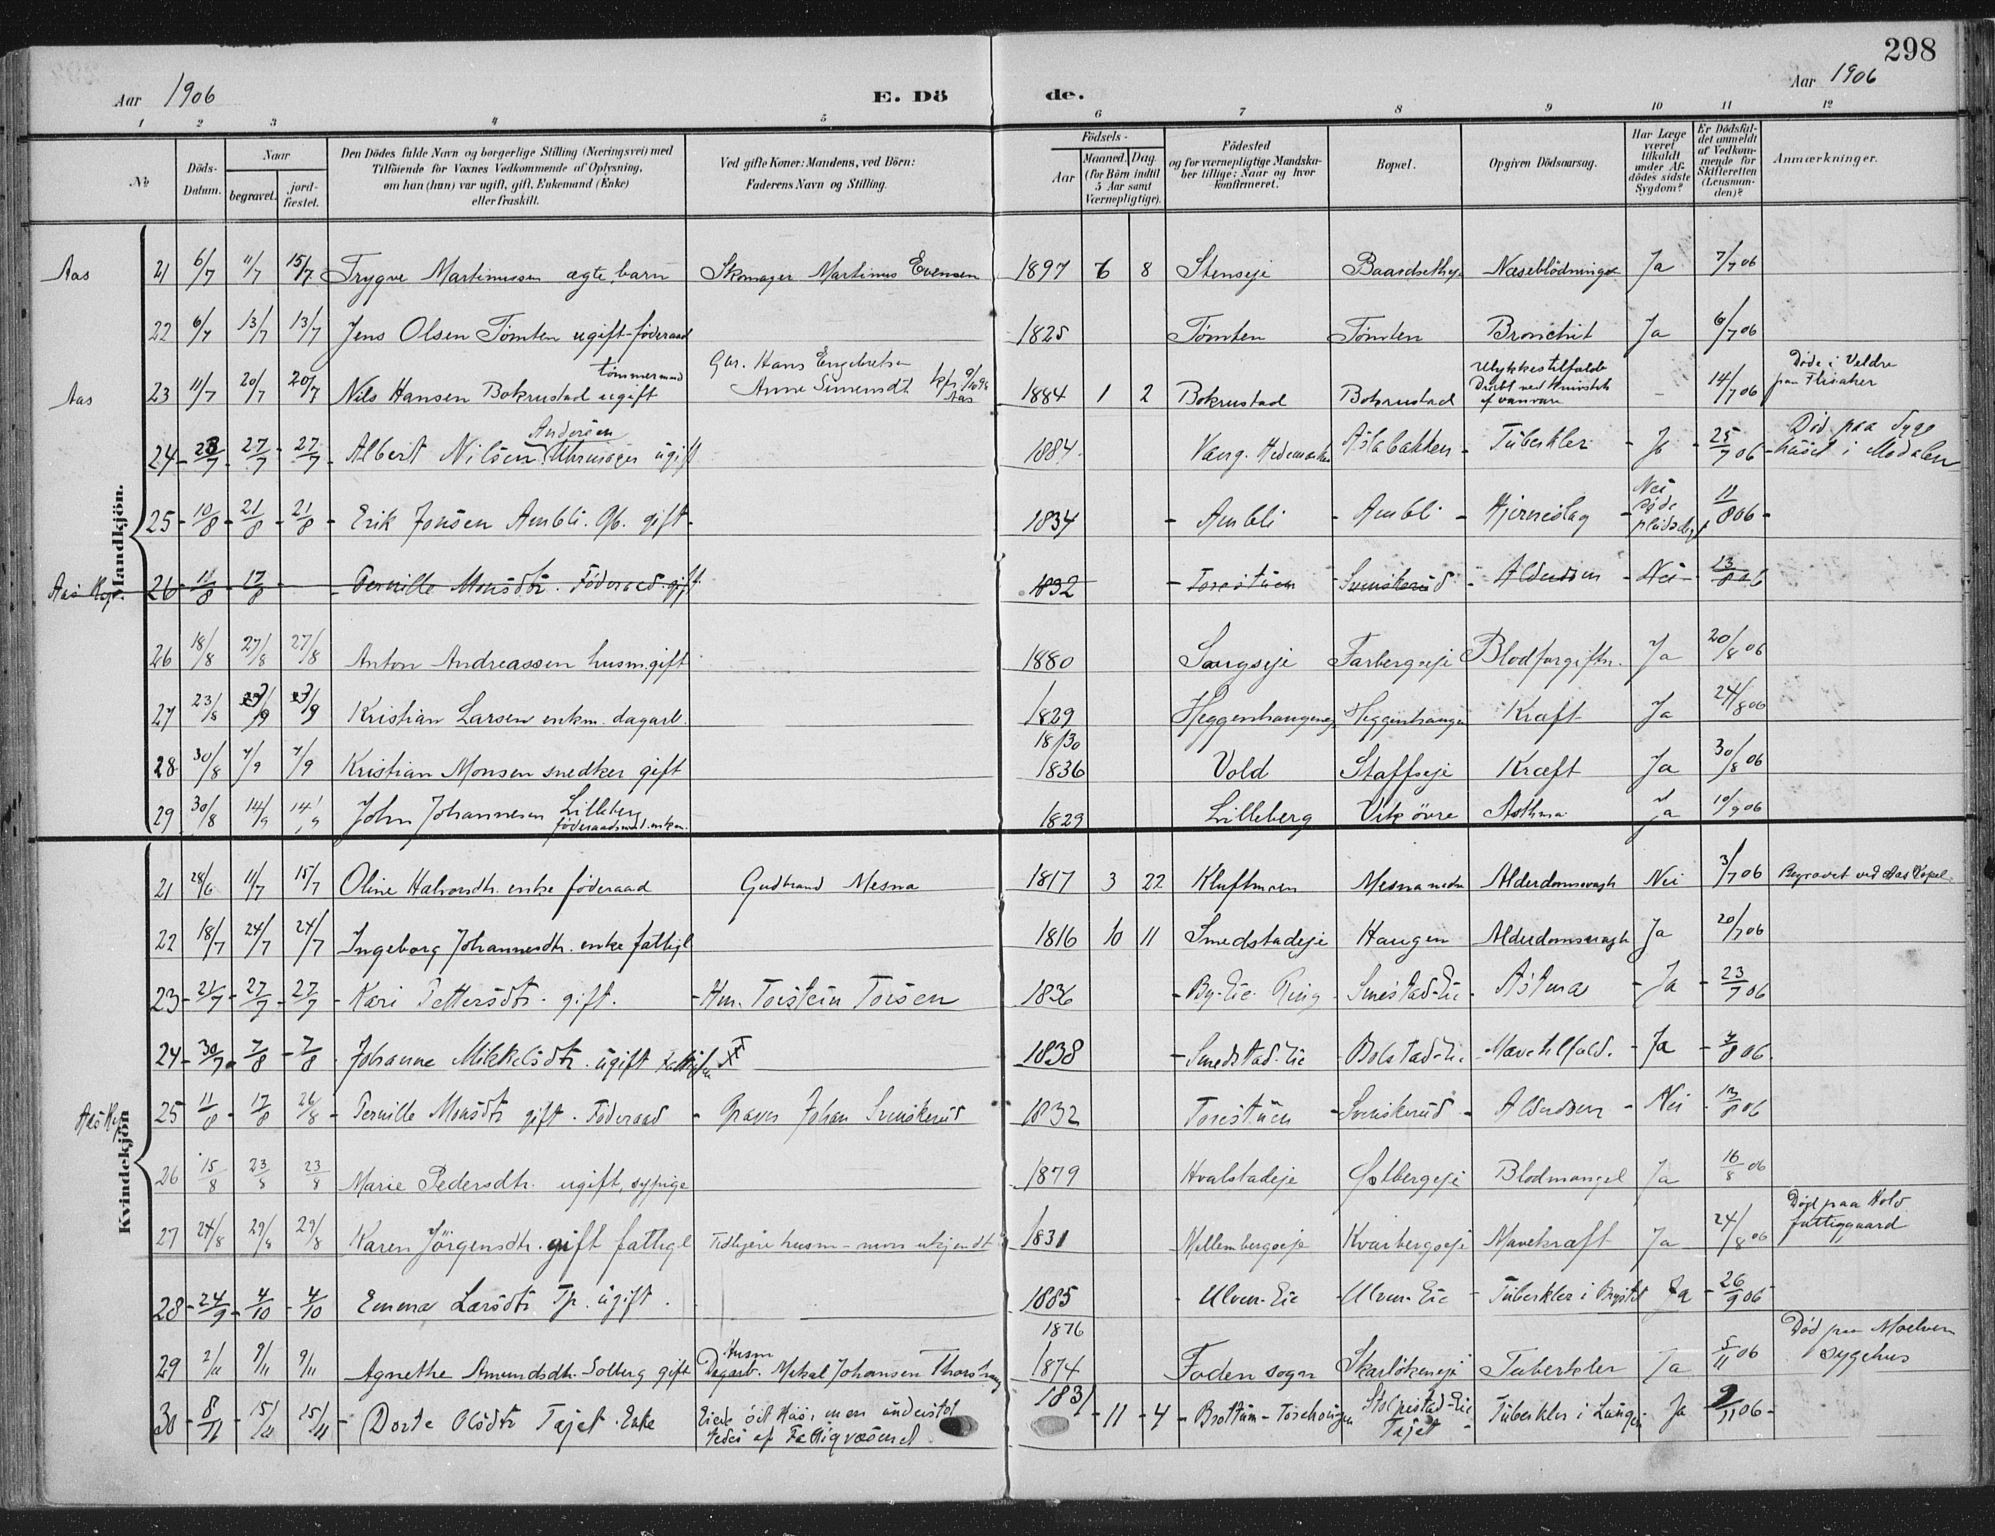 298
Aar 1906
E. Döde.
Aar 1906
1 2 3 4 5 6 7 8 9 10 11 12
No
Döds-Datum.
Naar
begravet.
jord-fæstet.
Den Dödes fulde Navn og borgerlige Stilling (Næringsvei) med
Tilföiende for Voxnes Vedkommende af Oplysning,
om han (hun) var ugift, gift, Enkemand (Enke)
eller fraskilt.
Ved gifte Koner: Mandens, ved Börn:
Faderens Navn og Stilling.
Födsels-
Aar
Maaned. Dag.
(for Börn indtil
5 Aar samt
Værnepligtige).
Födested
og for værnepligtige Mandska-
ber tillige: Naar og hvor
konfirmeret.
Bopæl.
Opgiven Dödsaarsag.
Har Læge
været
tilkaldt
under Af-
dödes sidste
Sygdom?
Er Dödsfal-
det anmeldt
af Vedkom-
mende for
Skifteretten
(Lensman-
den)?
Anmærkninger.
Mandkjön.
Aas 21 6/7 11/7 15/7 Trygve Martinussen ægte barn Skomager Martinus Evensen 1897 6 8 Stenseje Baardsetheje Næseblödninger Ja 7/7 06
22 6/7 13/7 13/7 Jens Olsen Tömten ugift föderaad 1825 Tömten Tömten Bronchit Ja 6/7 06
Aas 23 11/7 20/7 20/7 Nils Hansen Bokrustad ugift tömmermand Gbr. Hans Engebretsen Anne Simensdt. 1884 1 2 Bokrustad Bokrustad Ulykkestilfælde - 14/7 06 Döde i Veldre paa Flisaker
24 23/7 27/7 27/7 Albert Nilsen Andersen Uhrmager ugift 1884 Vang. Hedemarken Aslabakken Tuberkler Ja 25/7 06 Död paa Syge huset i Modalen
25 10/8 21/8 21/8 Erik Jonsen Ambli. Gb. gift 1834 Ambli Ambli Hjerneslag Nei Döde pludselig 11/8 06
Aas Kp. 26 11/8 17/8 Pernille Monsdtr. Föderaad gift 1832 Torestuen Svenskerud Alderdom Nei 13/8 06
26 18/8 27/8 27/8 Anton Andreassen husm. gift 1880 Saugseje Farbergseje Blodforgiftn. Ja 20/8 06
27 23/8 Kristian Larsen enkm. dagarb. 1829 Heggenhaugen Kræft Ja 24/8 06
28 30/8 7/9 7/9 Kristian Monsen snedker gift 18/30 1836 Vold Staffseje Kræft Ja 30/8 06
29 30/8 14/9 14/9 John Johannesen Lilleberg föderaadsmd. enkm. 1829 Lilleberg Vik övre Asthma Ja 10/9 06
Kvindekjön
21 28/6 11/7 15/7 Oline Halvorsdtr. enke föderaad Gudbrand Mesna 1817 3 22 Kluftmoen Mesna nedre Alderdomssvagh Nei 3/7 06 Begravet ved Aas Kapel.
22 18/7 24/7 24/7 Ingeborg Johannesdtr. enke fattigl 1816 10 11 Smedstadeje Haugen Alderdomssvagh Ja 20/7 06
23 21/7 27/7 27/7 Kari Pettersdtr. gift. Hm. Torstein Torsen 1836 By-Eie Ring Smestad-Eie Astma Ja 23/7 06
24 30/7 7/8 7/8 Johanne Mikkelsdtr. ugift Fattiglem 1838 Smedstad-Eie Bolstad-Eie Ja 2/8 06
Aas Kp. 25 11/8 17/8 26/8 Pernille Monsdtr gift. Föderaad Johan Svenskerud 1832 Torestuen Svenskerud Alderdom Nei 13/8 06
26 15/8 23/8 23/8 Marie Pedersdtr. ugift, sypige 1879 Hvalstadeje Blodmangel Ja 16/8 06
27 24/8 29/8 29/8 Karen Jörgensdtr. gift fattigl Tidligere husm - navn ukjendt 1831 Mellembergseje Kvarbergseje Mavekræft Ja 24/8 06 Död paa Hold fattiggaard
28 24/9 4/10 4/10 Emma Larsdtr Tp. ugift 1885 Ulven-Eie Ulven-Eie Tuberkler i Brystet Ja 26/9 06
29 2/11 9/11 9/11 Agnethe Amundsdtr. Solberg gift Husm Dagarb. Mikal Johansen 1876 1874 Faden sogn Tuberkler Ja 5/11 06 Död paa Moelven Sygehus
30 8/11 15/11 15/11 Dorte Olsdtr Tajet. Enke Eiede sit Hus, men understöt tedes af Fattigvæsenet 1831 11 4 Brottum Tajet Tuberkler i Lunger Ja 9/11 06